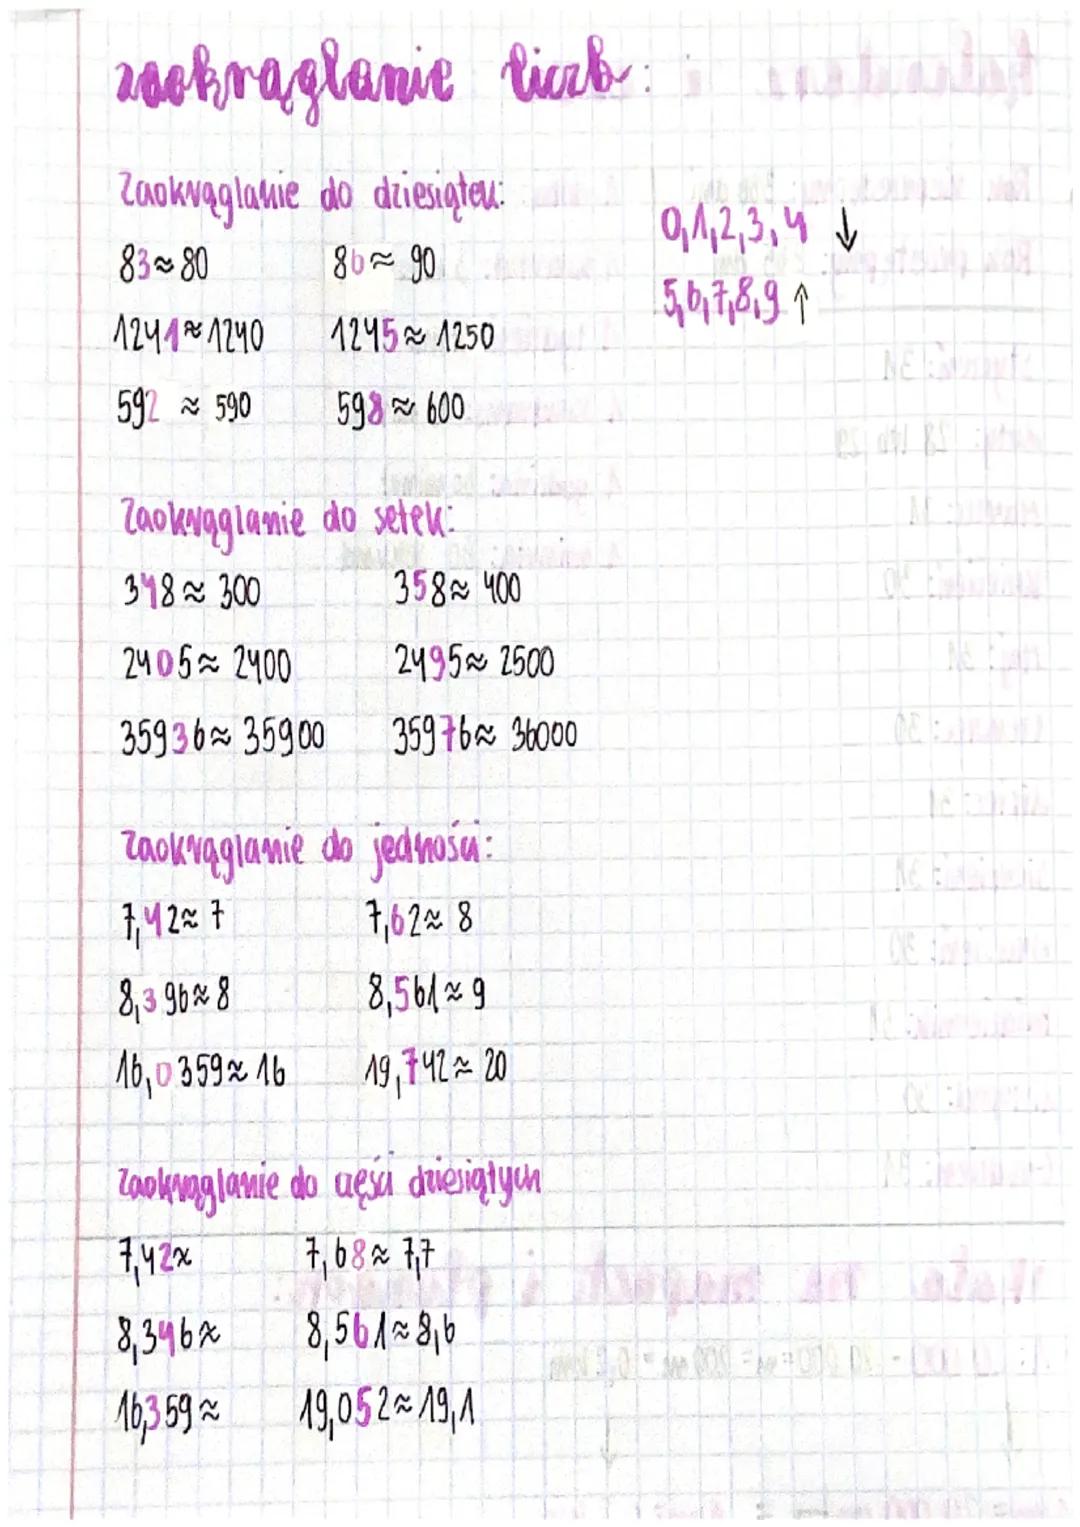 zaokrąglanie liczb:
Zaokrąglanie do dziesiątek:
0,1,2,3,4 ↓
83≈80 86≈ 90
5,6,7,8,9 ↑
1241≈1240 1245≈ 1250
592 ≈ 590 598≈ 600
Zaokrąglanie do setek:
348≈ 300 358≈ 400
2405≈ 2400 2495≈ 2500
35936≈ 35900 35976≈ 36000
Zaokrąglanie do jedności:
7,42≈ 7 7,62≈ 8
8,396≈8 8,561≈9
16,0359≈16 19,742≈ 20
Zaokrąglanie do części dziesiątych
7,42≈ 7,68≈ 7,7
8,346≈ 8,561≈8,6
16,359≈ 19,052≈19,1